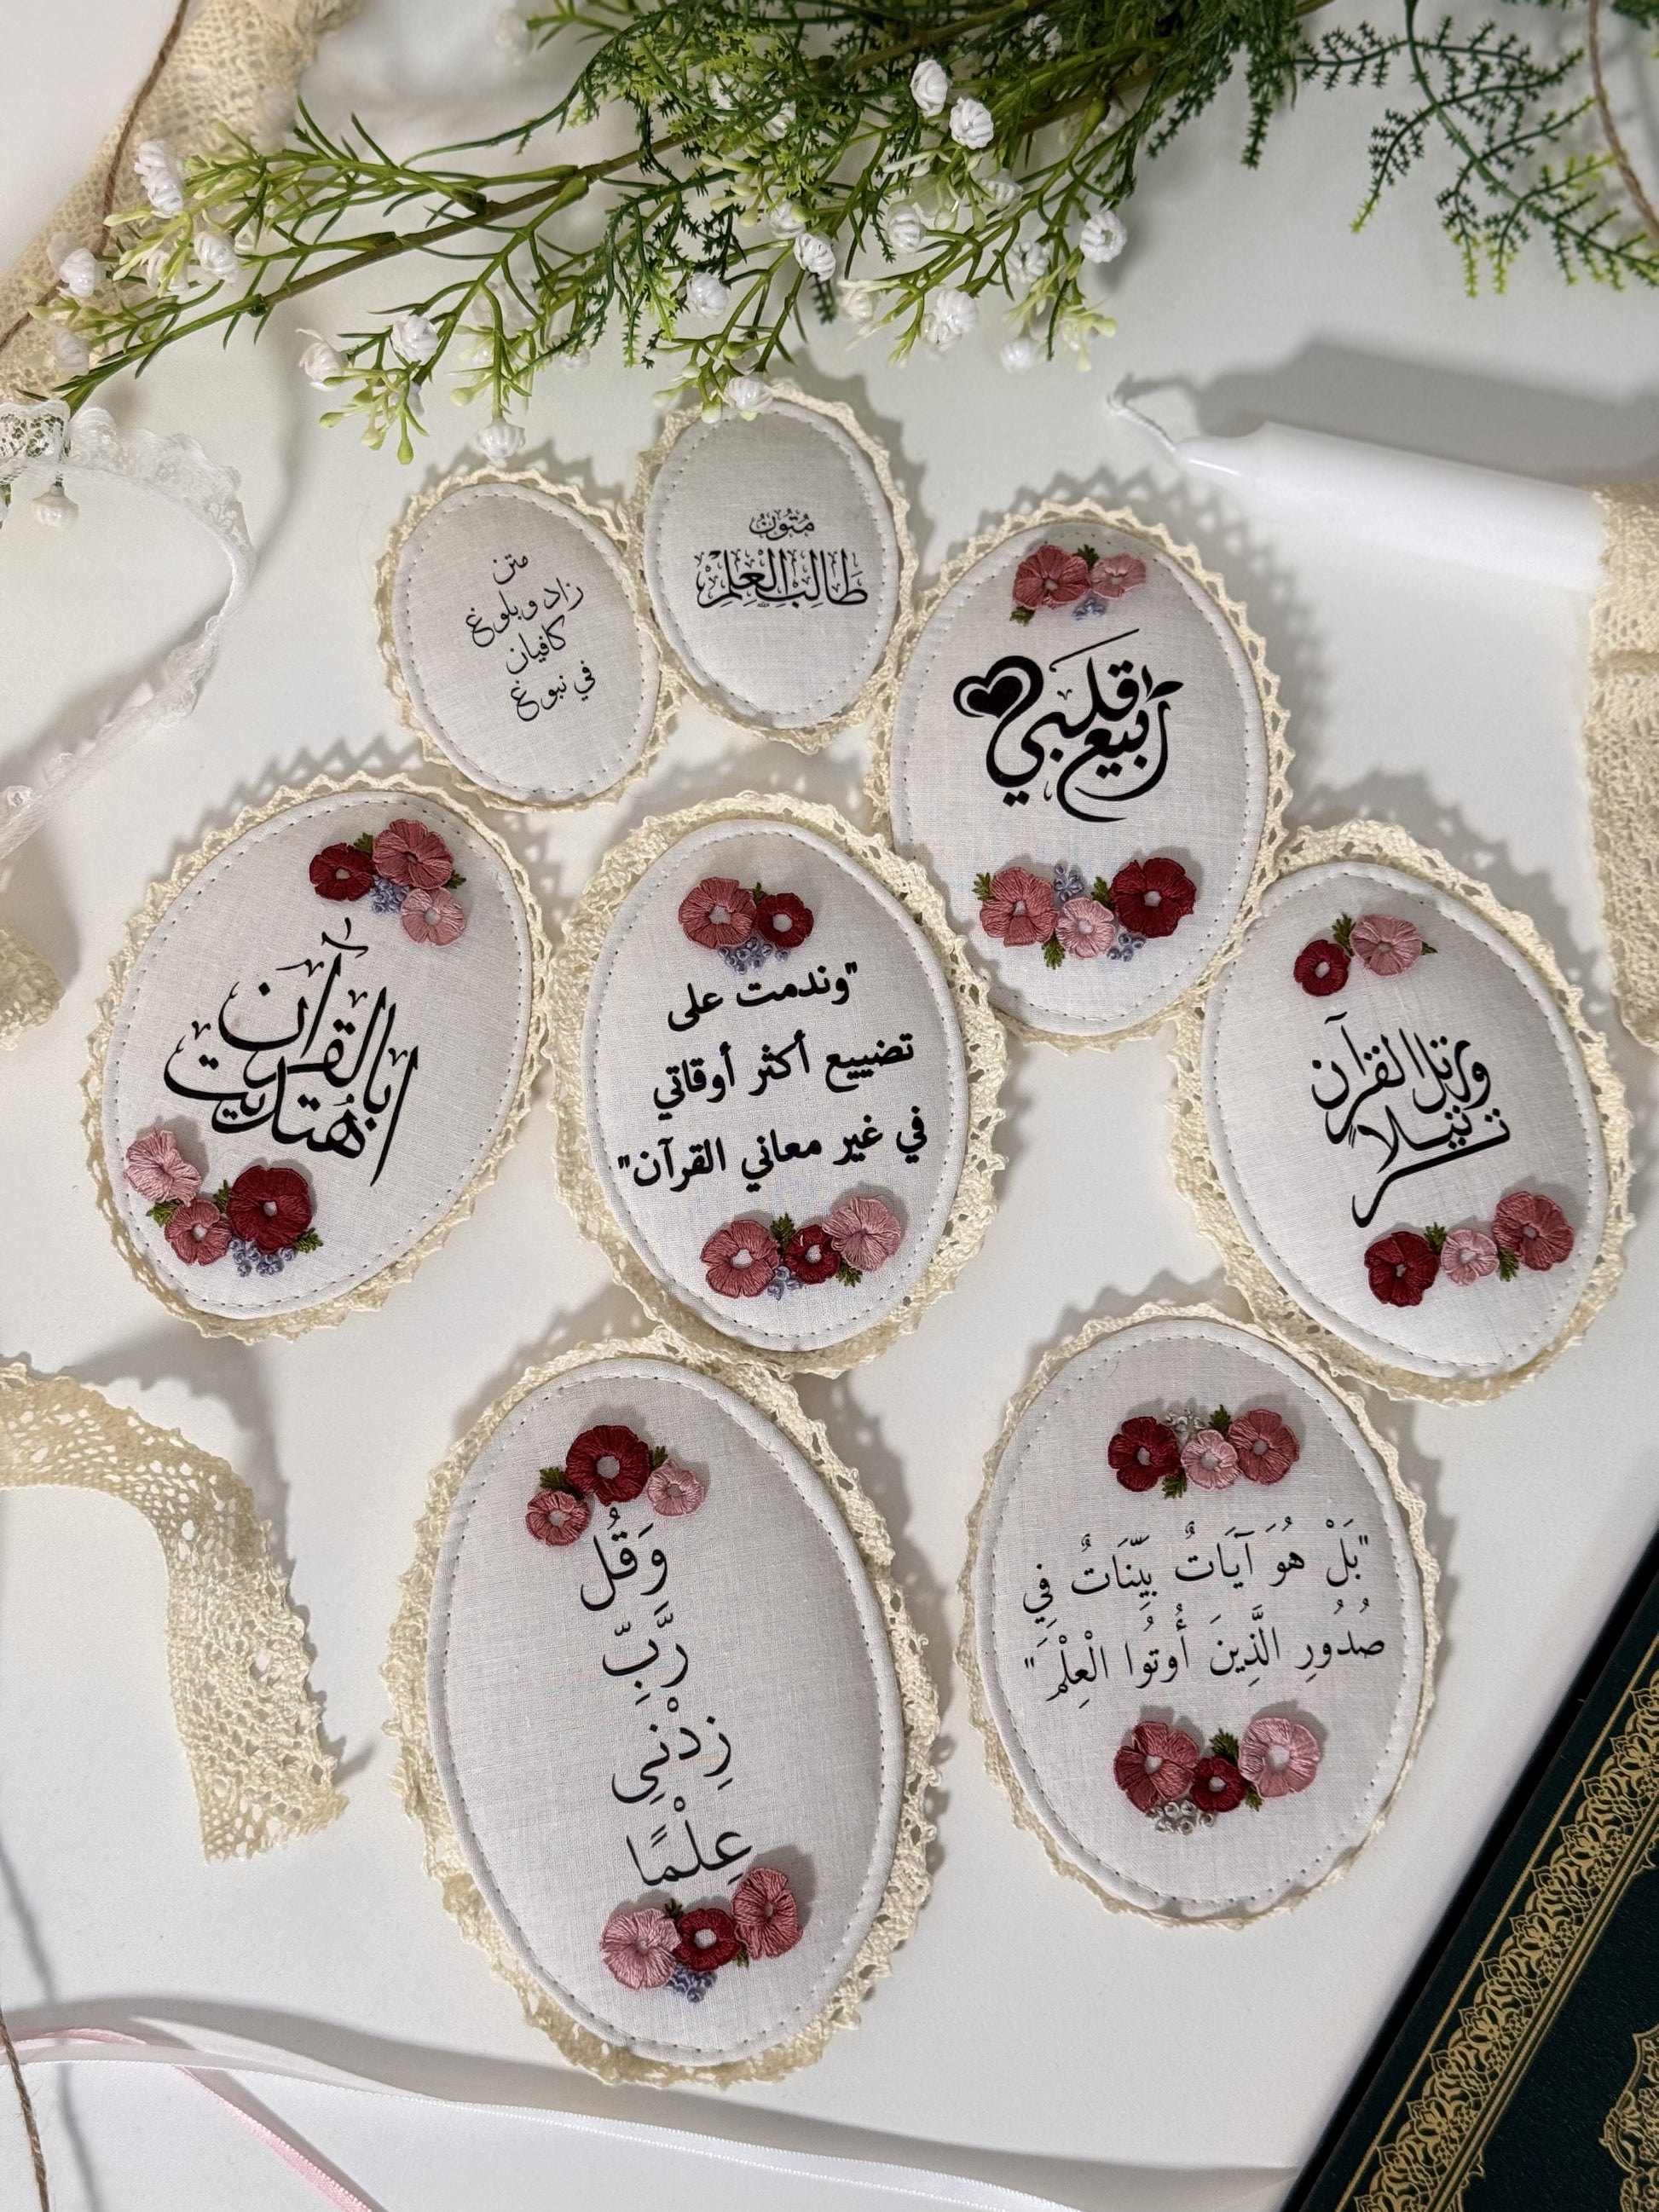 متن
زاد وبلوغ
كافيان
في نبوغ
مُتُونُ
طَالِبِ الْعِلْمِ
رَبِيعَ قَلْبِي
بِالْقُرْآن
اهْتَدَيْت
"وندمت على
تضييع أكثر أوقاتي
في غير معاني القرآن"
ورتل القرآن
ترتيلا
وَقُل
رَّبِّ
زِدْنِى
عِلْمًا
"بَلْ هُوَ آيَاتٌ بَيِّنَاتٌ فِي
صُدُورِ الَّذِينَ أُوتُوا الْعِلْمَ"